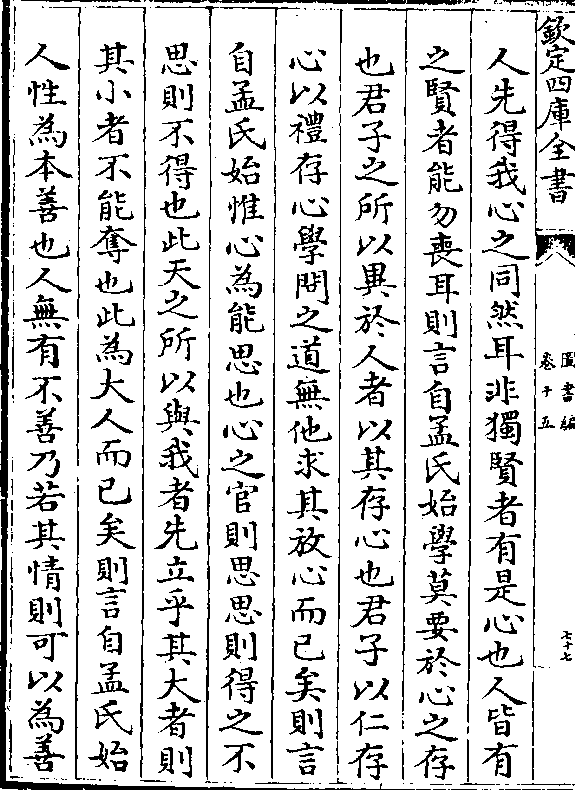 欽定四庫全書
圖書編
卷十五
七十七
人先得我心之同然耳非獨賢者有是心也人皆有
之賢者能勿喪耳則言自孟氏始學莫要於心之存
也君子之所以異於人者以其存心也君子以仁存
心以禮存心學問之道無他求其放心而已矣則言
自孟氏始惟心為能思也心之官則思思則得之不
思則不得也此天之所以與我者先立乎其大者則
其小者不能奪也此為大人而已矣則言自孟氏始
人性為本善也人無有不善乃若其情則可以為善